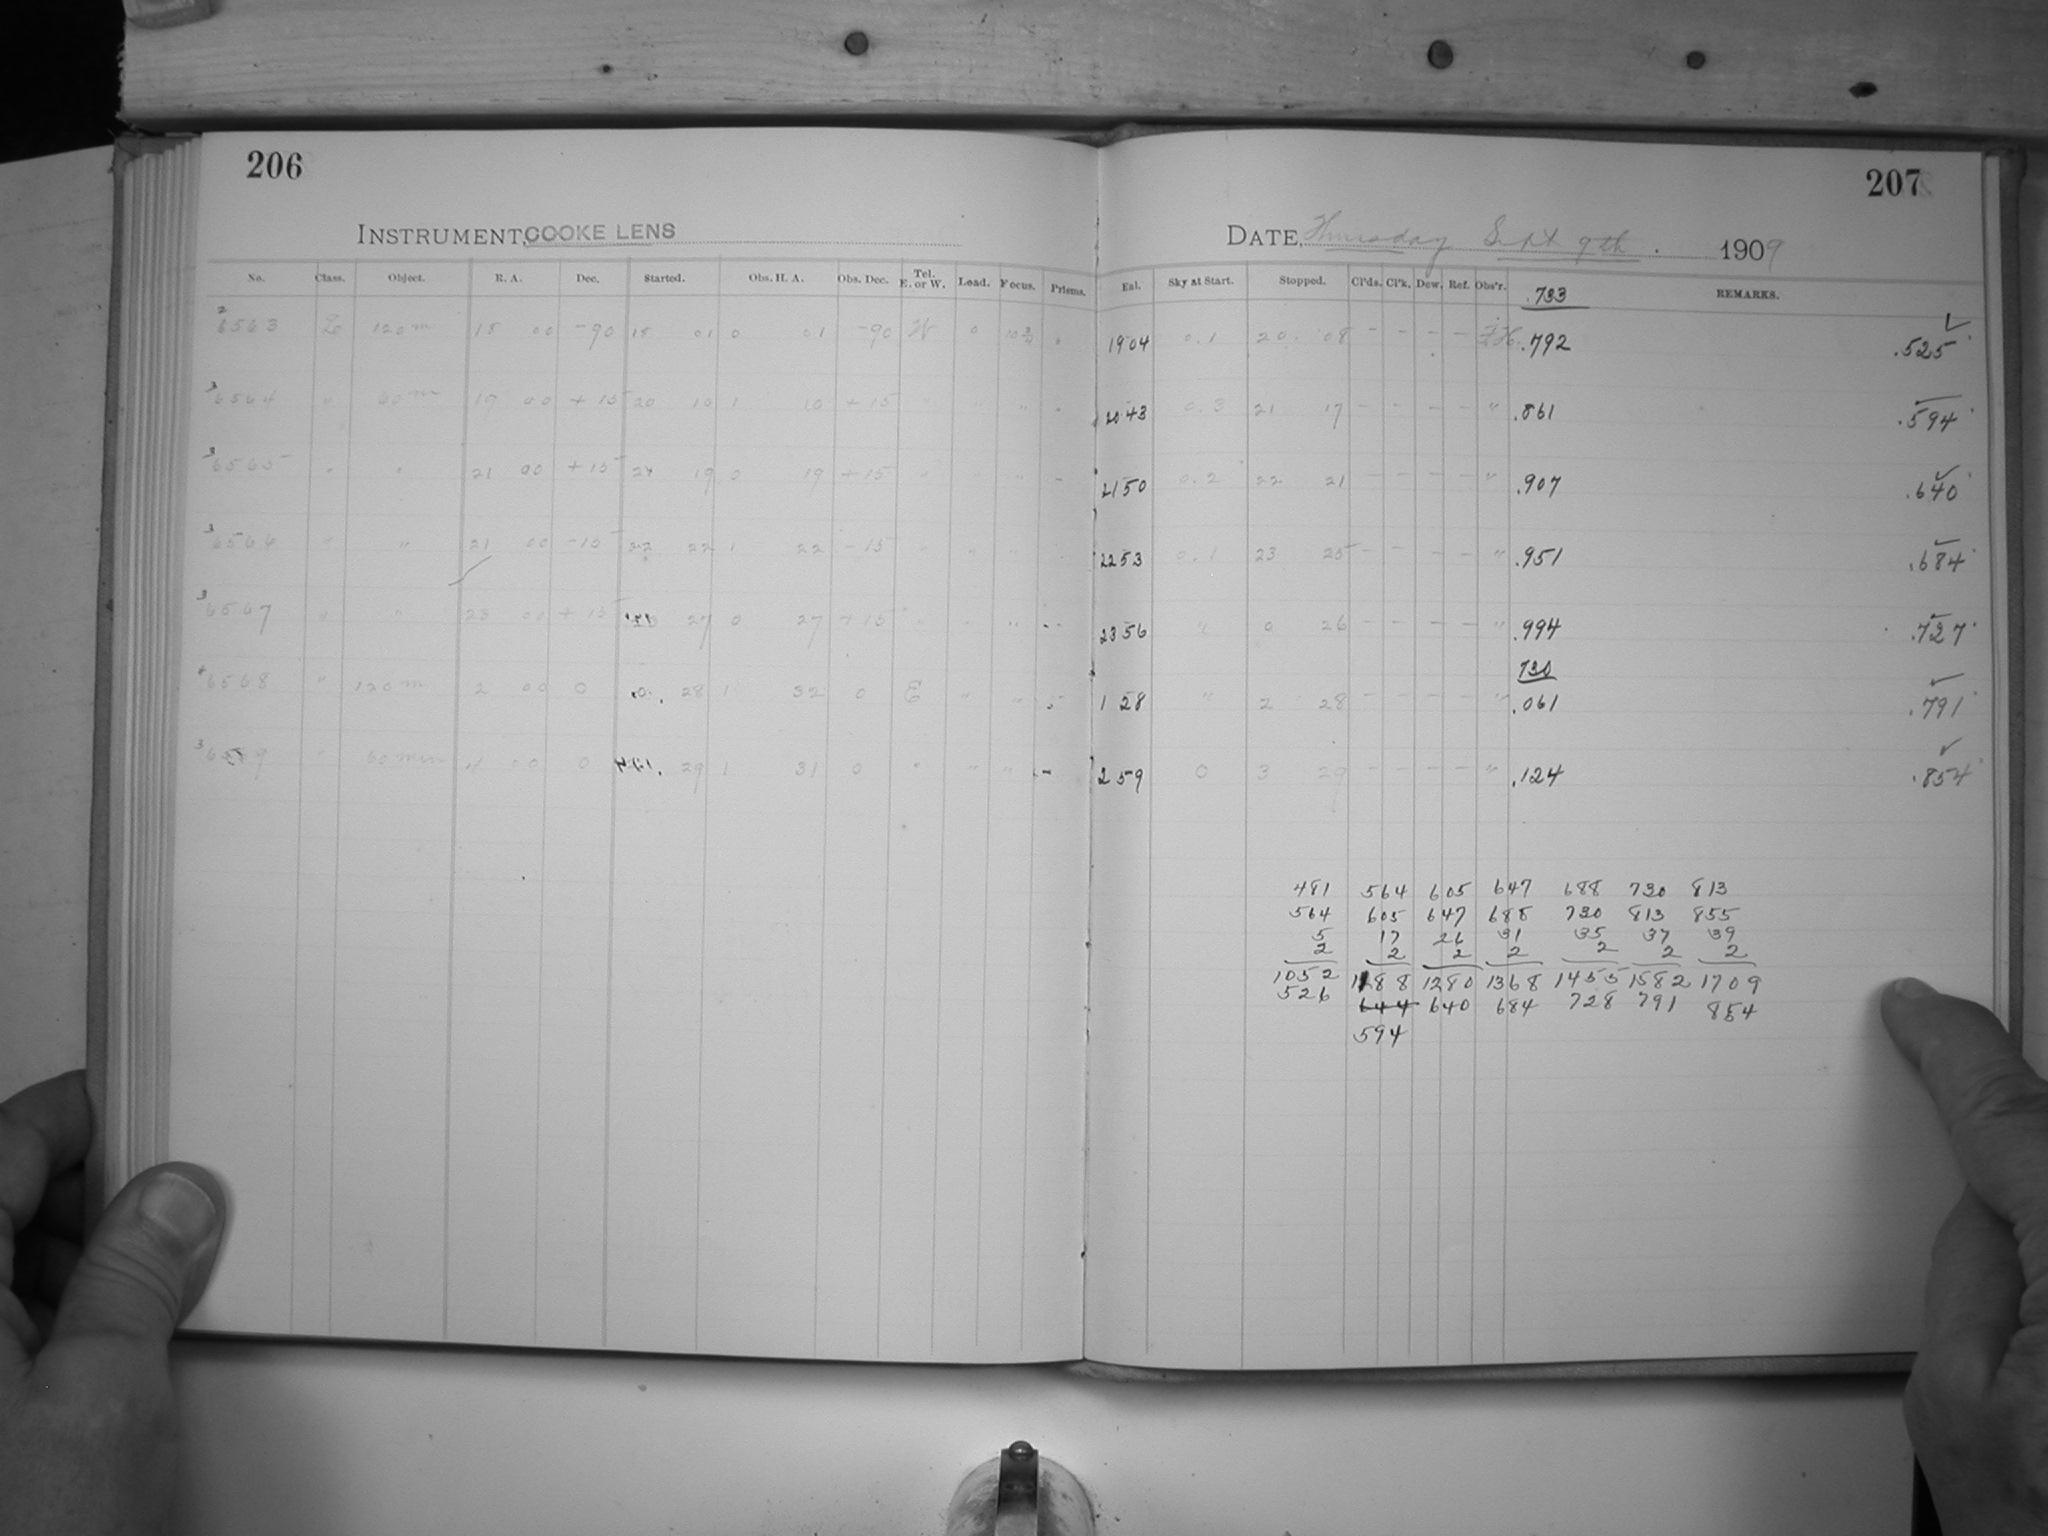 206
207
INSTRUMENT, COOKE LENS
DATE, Thursday Sept 9th. 1909
No. Class. Object. R. A. Dec. Started. Obs. H. A. Obs. Dec. Tel. E. or W. Load. Focus. Prisms. Eal. Sky at Start. Stopped. Cl'ds. Cl'k. Dew. Ref. Obs'r. REMARKS.
.733
6563 120m 15 00 -90 15 01 0 01 -90 W 0 1904 0.1 20 08 - - - - .792 .525
6564 " 60m 19 00 +15 20 10 1 10 +15 " " " 2043 0.3 21 17 - - - - " .861 .594
6565 " " 21 00 +15 19 0 19 +15 " " " 2150 0.2 22 21 - - - - " .907 .640
6566 " " 21 00 -15 22 22 1 22 -15 " " " 2253 0.1 23 25 - - - - " .951 .684
6567 " " 23 00 +15 27 0 27 +15 " " " 2356 " 0 26 - - - - " .994 .727
730
6568 " 120m 2 00 0 28 1 32 0 E " " 1 28 " 2 28 - - - - " .061 .791
" 60 min 4 00 0 29 1 31 0 " " " 2 59 0 3 29 - - - - " .124 .854
481 564 605 647 688 730 813
564 605 647 688 730 813 855
5 17 26 31 35 37 39
2 2 2 2 2 2 2
1052 1188 1280 1368 1455 1582 1709
526 644 640 684 728 791 854
594